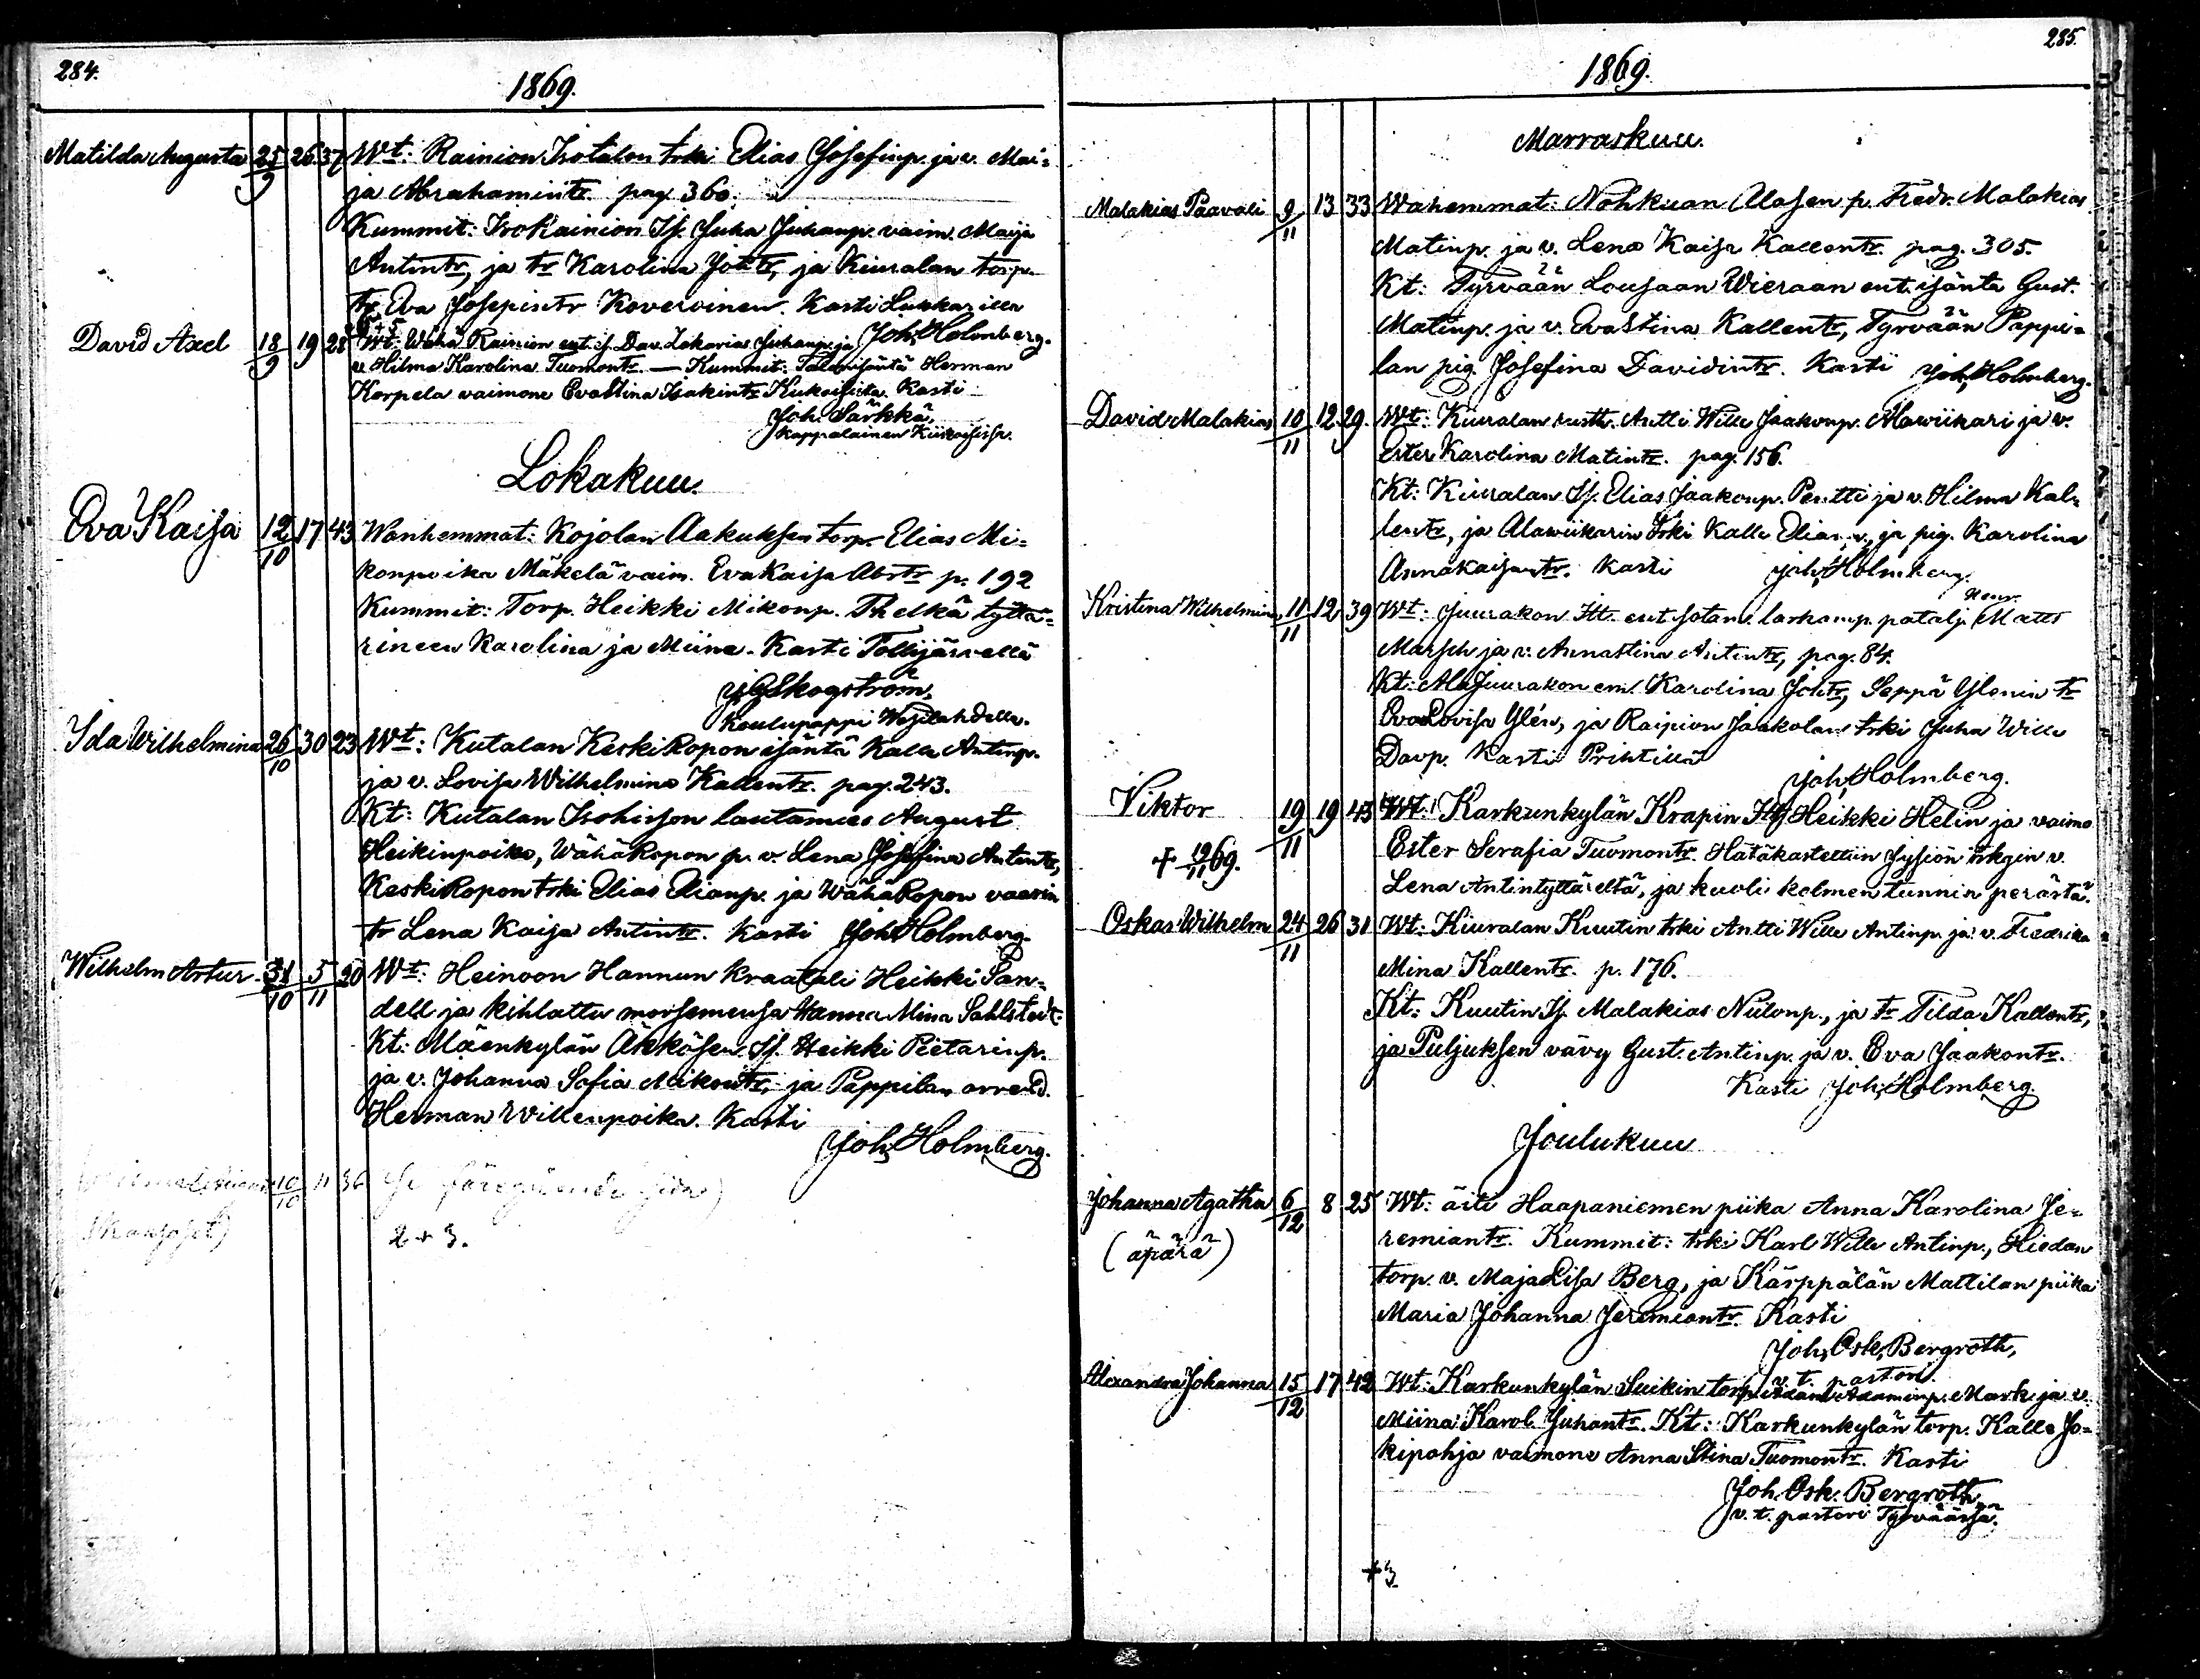 284.
1869.
Matilda Augusta 25/9 26 37 Wt: Rainion Isotalon trki Elias Josefinp. ja v. Mai=
ja Abrahamintr. pag. 360.
Kummit: Isokainion Is. Juha Juhanp. vaim. Maija
Antintr, ja tr Karolina Johtr, ja Kiuralan torp.
tr Eva Josepintr Koveroinen. Kasti
Joh. Holmberg.
David Axel 18/9 19 28 Wt: Wähä Rainion ent. is. Dav. Zakarias Juhanp. ja
v. Hilma Karolina Tuomontr. — Kummit: Talonisäntä Herman
Korpela vaimone EvaStina Isakintr Kiukaisista. Kasti
Joh. Särkkä,
Kappalainen Kiukaisissa.
Lokakuu.
Eva Kaisa 12/10 17 43 Wanhemmat: Kojolan Aakuksen torp. Elias Mi=
konpoika Mäkelä vaim. EvaKaisa Abrtr p. 192
Kummit: Torp. Heikki Mikonp. tyttä=
rineen Karolina ja Miina. Kasti
Skogström,
Koulupappi
Ida Wilhelmina 26/10 30 23 Wt: Kutalan KeskiRopon isäntä Kalle Antinp.
ja v. Lovisa Wilhelmina Kallentr. pag. 243.
Kt: Kutalan lautamies August
Heikinpoika, WähäRopon p. v. Lena Josefina Antintr,
KeskiRopon trki Elias Elianp. ja WähäRopon vaarin
tr Lena Kaisa Antintr. Kasti Joh. Holmberg.
Wilhelm Artur. 31/10 5/11 20 Wt: Heinoon Hannun kraatali Heikki San=
dell ja kihlattu morsiamensa Hanna Mina Sahlstedt.
Kt: Mäenkylän Äkkösen Is. Heikki Pietarinp.
ja v. Johanna Sofia Mikontr, ja Pappilan arrend.
Herman Willenpoika. Kasti
Joh. Holmberg.
10/10 11 36
2+3.
285.
1869.
Marraskuu.
Malakias Paavali 9/11 13 33 Wanhemmat: Nohkuan Alasen p. Fredr. Malakias
Matinp. ja v. Lena Kaisa Kallentr. pag. 305.
Kt: Tyrvään Lousaan Wieraan ent. isäntä Gust.
Matinp. ja v. EvaStina Kallentr, Tyrvään Pappi=
lan pig. Josefina Davidintr. Kasti Joh. Holmberg.
David Malakias 10/11 12 29. Wt: Kiuralan rusth. Antti Wille Jaakonp. Alawiikari ja v.
Ester Karolina Matintr. pag. 156.
Kt: Kiuralan Is. Elias Jaakonp. Penttti ja v. Hilma Kal=
lentr, ja Alawiikarin trki Kalle Elianp, ja pig. Karolina
Annakaisantr. Kasti Joh. Holmberg.
Kristina Wilhelmina 11/11 12 39 Wt: Juurakon itt. ent. sotam. patalj. Henr. Matts
Marsch ja v. Annastina Antintr, pag. 84.
Kt: AlaJuurakon em. Karolina Johtr, Seppä Glenin tr
EvaLovisa Glén, ja Rainion Jaakolan trki Juha Wille
Davp. Kasti Prihtillä
Joh. Holmberg.
Viktor 19/11 19 43 Wt: Karkunkylän Krapin Its. Heikki Helin ja vaimo
Ester Serafia Tuomontr. Hätäkastettiin trkzin v.
+ 19/11 69.
Lena Antintyttäreltä, ja kuoli kolmen tunnin perästä.
Oskar Wilhelm 24/11 26 31 Wt: Kiuralan Kuutin trki Antti Wille Antinp. ja v. Fredrika
Mina Kallentr. p. 176.
Kt: Kuutin Is. Malakias Niilonp., ja tr Tilda Kallentr,
ja Puljuksen vävy Gust. Antinp. ja v. Eva Jaakontr.
Kasti Joh. Holmberg.
Joulukuu
Johanna Agatha 6/12 8 25 Wt: äiti Haapaniemen piika Anna Karolina Je=
(äpärä)
remiantr. Kummit: trki Karl Wille Antinp., Hiedan
torp. v. MajaLisa Berg, ja Kärppälän Mattilan piika
Maria Johanna Jeremiantr. Kasti
Joh. Osk. Bergroth,
v. t. pastori.
Alexandra Johanna 15/12 17 42 Wt: Karkunkylän Suikin torp. Adam Adaminp. Mark ja v.
Miina Karol. Juhontr. Kt: Karkunkylän torp. Kalle Jo=
kipohja vaimone Anna Stina Tuomontr. Kasti
Joh. Osk. Bergroth
v. t. pastori Tyrväässä.
+3